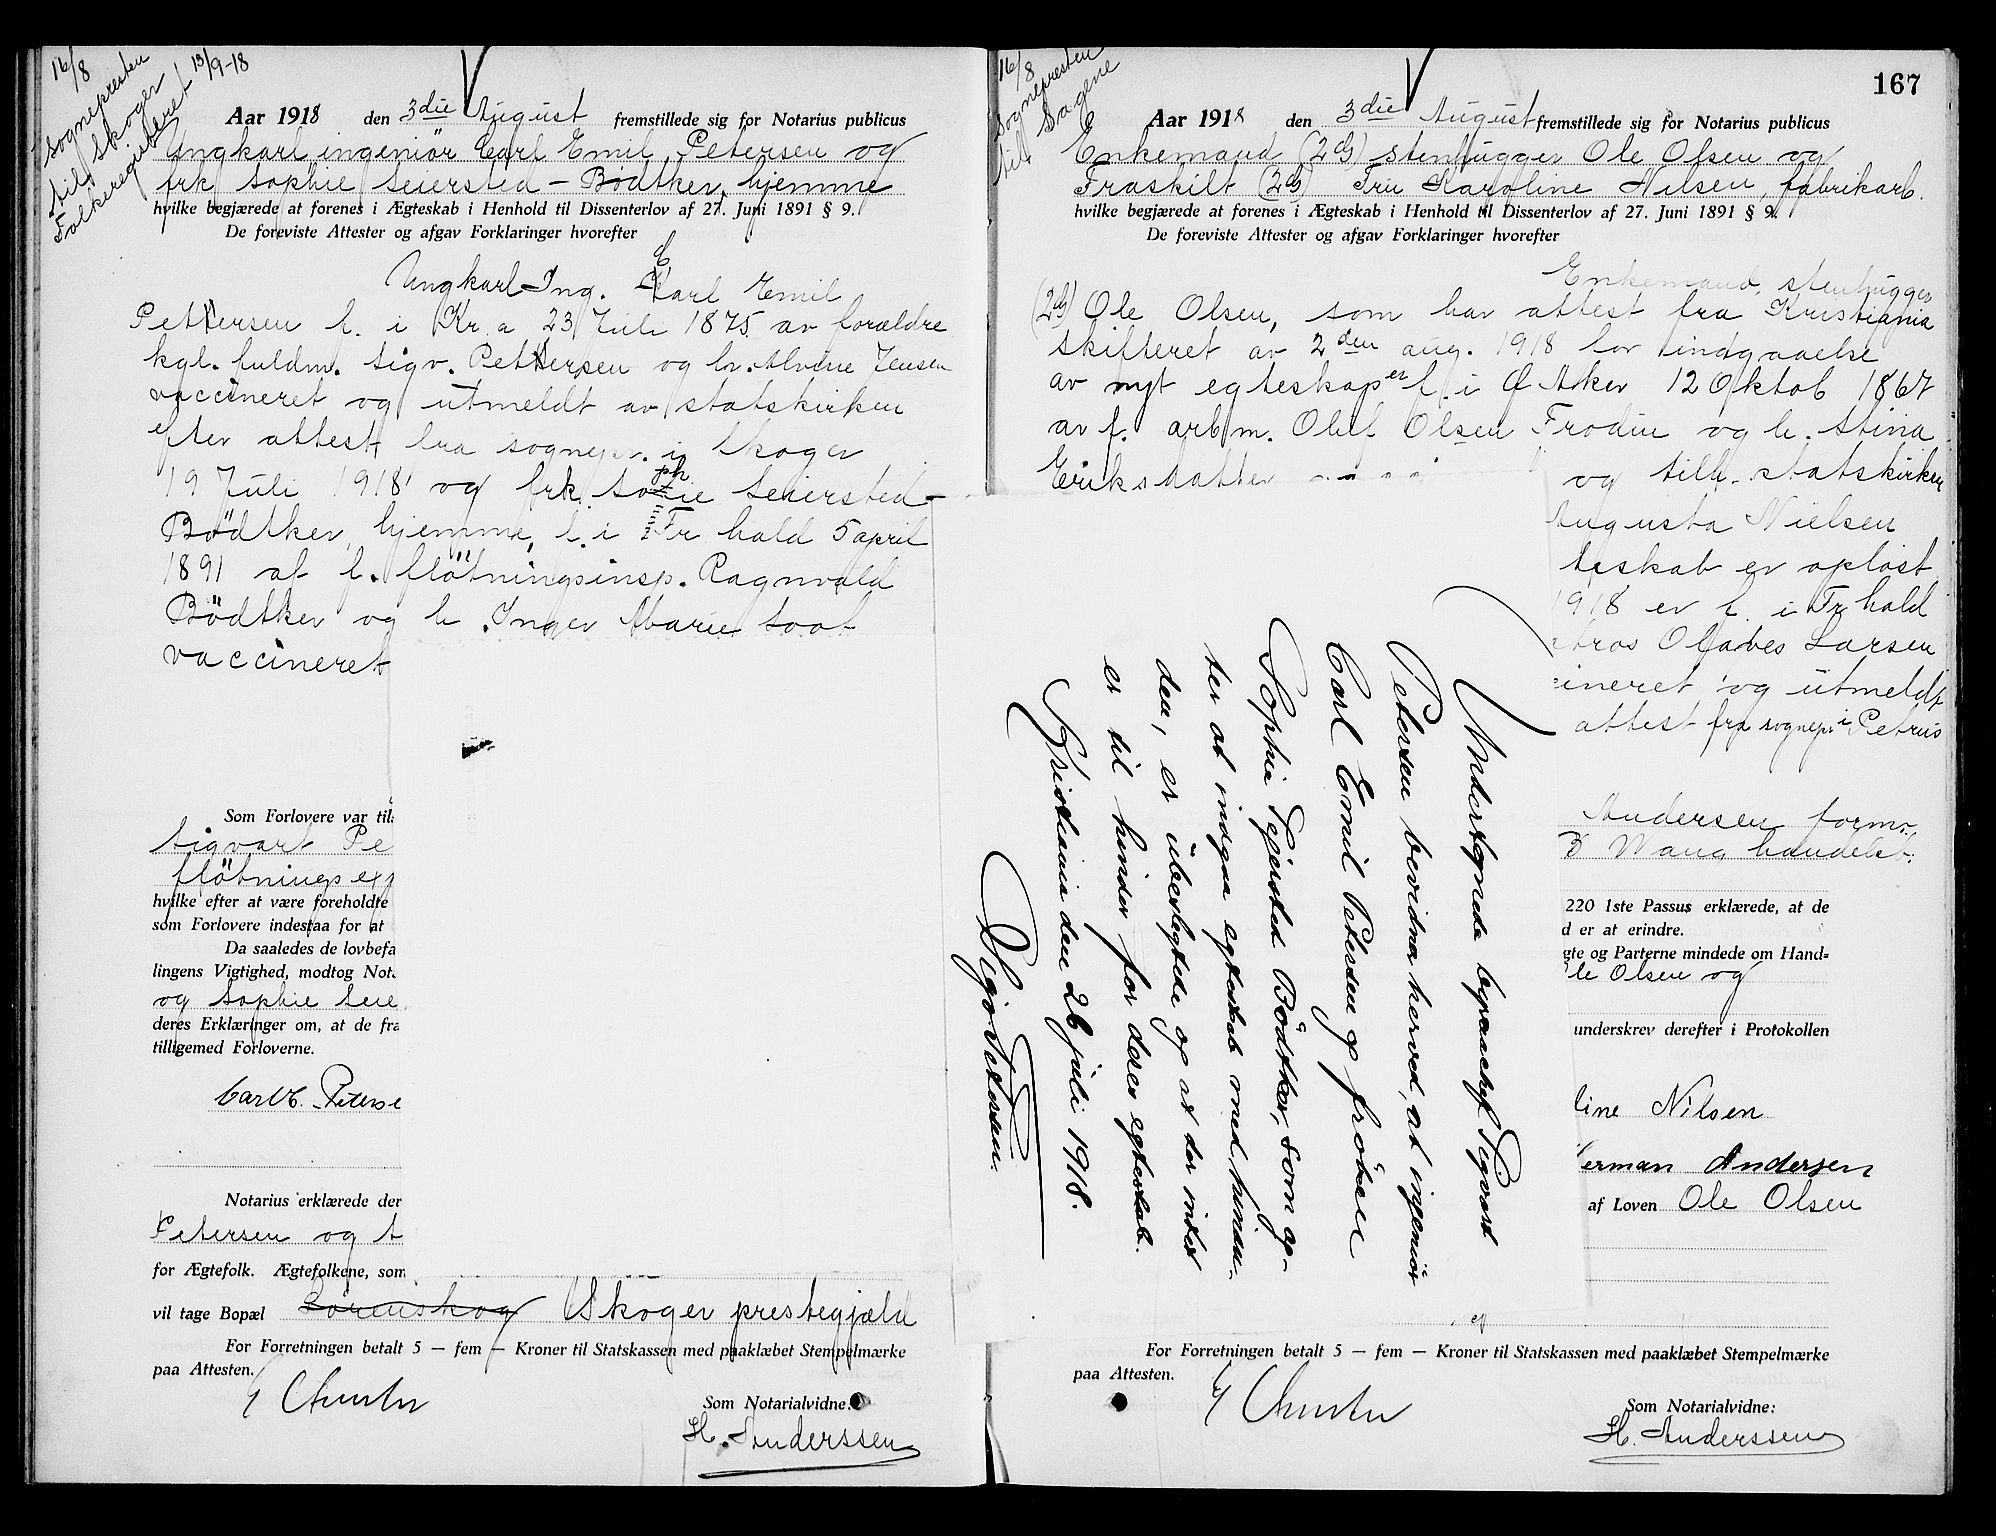 16/8
Sognepresten
til Skoger
Folkeregisteret 13/9-18
Aar 1918 den 3die August fremstillede sig for Notarius publicus
Ungkarl, ingeniör Carl Emil Petersen og
frk Sophie Seiersted-Bödtker, hjemme
hvilke begjærede at forenes i Ægteskab i Henhold til Dissenterlov af 27. Juni 1891 § 9.
De foreviste Attester og afgav Forklaringer hvorefter
Ungkarl Ing. Carl Emil
Petersen f. i Kr.a 23 Juli 1875 av forældre
kgl. fuldm. Sigv. Petersen og h. Alvine Jensen
vaccineret og utmeldt av statskirken
efter attest fra sognepr. i Skoger
19 Juli 1918 og frk. Sophie Seiersted-
Bödtker, hjemme, f. i Fr hald 5 april
1891 af f. flötningsinsp. Ragnvald
Bödtker og h. Inger Marie Soot
vaccineret
Som Forlovere var til
Sigvart Pe
flötnings
hvilke efter at være foreholdte
som Forlovere indestaa for at
Da saaledes de lovbefa
lingens Vigtighed, modtog Not
og Sophie Seie
deres Erklæringer om, at de fra
tilligemed Forloverne.
Carl E. Peterse
Notarius erklærede der
Petersen og S
for Ægtefolk. Ægtefolkene, som
vil tage Bopæl Sörenskog Skoger prestegjæld
For Forretningen betalt 5 — fem — Kroner til Statskassen med paaklæbet Stempelmærke
paa Attesten.
Som Notarialvidne:
H. Anderssen
Undertegnede byraachef Sigvart
Petersen bevidner herved, at ingeniör
Carl Emil Petersen og fröken
Sophie Sejersted Bödtker, som ag-
ter at indgaa egteskab med hinan-
den, er ubeslegtede og at der intet
er til hinder for deres egteskab.
Kristiania den 26 juli 1918.
Sigv. Petersen.
167
16/8
Sognepresten
til Sagene
Aar 1918 den 3die August fremstillede sig for Notarius publicus
Enkemand (2 g) stenhugger Ole Olsen og
Fraskilt (2 g) Fru Karoline Nilsen, fabrikarb.
hvilke begjærede at forenes i Ægteskab i Henhold til Dissenterlov af 27. Juni 1891 § 9.
De foreviste Attester og afgav Forklaringer hvorefter
Enkemand, stenhugger
(2 g) Ole Olsen, som har attest fra Kristiania
skifteret av 2den aug. 1918 for indgaaelse
av nyt egteskap er f. i Ø Aker 12 Oktob 1867
av f. arbm. Oluf Olsen Frodin og h. Stina
Eriksdatter
og tilh. statskirken
Augusta Nielsen
teskab er oplöst
1918 er f. i Fr hald
tros Olaves Larsen
cineret og utmeldt
attest fra sognepr i Petrus
Andersen form.
Wang handelsb.
220 1ste Passus erklærede, at de
d er at erindre.
gte og Parterne mindede om Hand-
le Olsen og
underskrev derefter i Protokollen
line Nilsen
erman Andersen
af Loven Ole Olsen
For Forretningen betalt 5 — fem — Kroner til Statskassen med paaklæbet Stempelmærke
paa Attesten.
Som Notarialvidne:
H. Anderssen